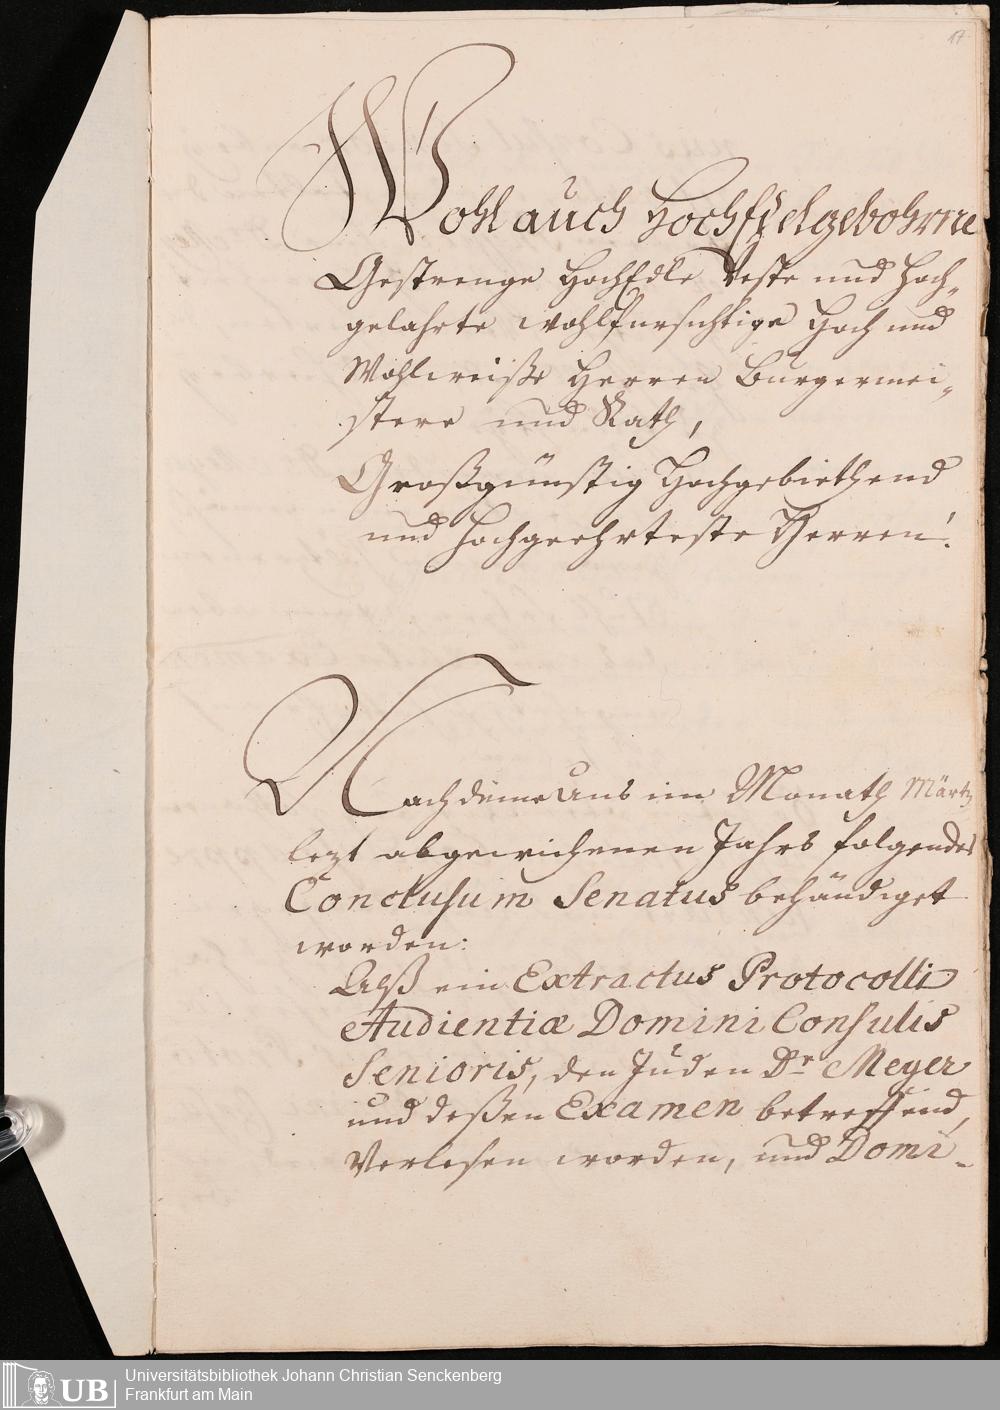 17
Wohl auch HochEdelgebohrne
Gestrenge HochEdle Veste und Hoch-
gelahrte wohlfursichtige Hoch und
Wohlweiße Herren Burgermei-
stere und Rath,
Großgünstig Hochgebiethend
und Hochgeehrteste Herren!
Nachdeme Uns im Monath Märtz
lezt abgewichenen Jahrs folgendes
Conclusum Senatus behändiget
worden:
Alß ein Extractus Protocolli
Audientiæ Domini Consulis
Senioris, den Juden Dr Meyer
und deßen Examen betreffend,
Verlesen worden, und Domi-
UB
Universitätsbibliothek Johann Christian Senckenberg
Frankfurt am Main